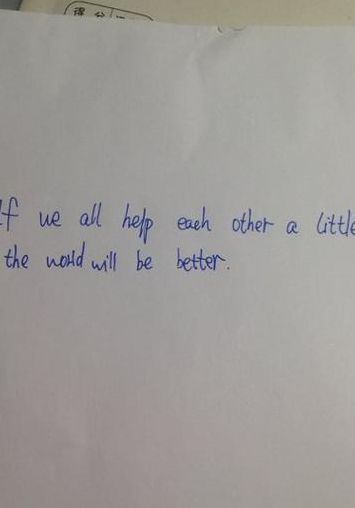 得分
If we all help each other a little
the world will be better.